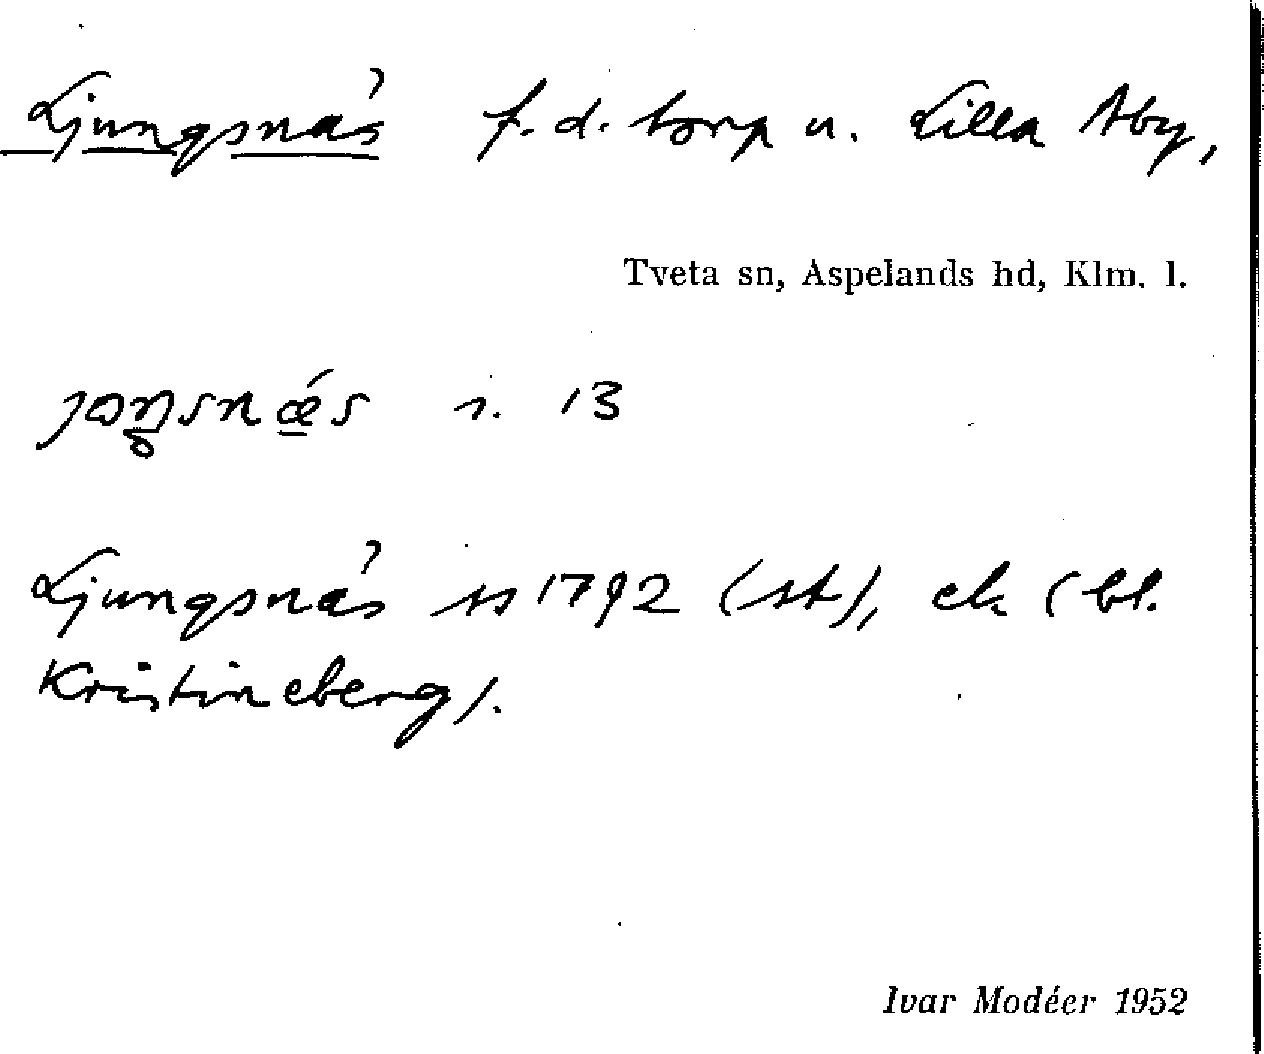 Ljungsnäs f. d. torp u. Lilla Åby,
Tveta sn, Aspelands hd, Klm. l.
i. 13
Ljungsnäs 1792 (st), ek (bl.
Kristineberg).
Ivar Modéer 1952